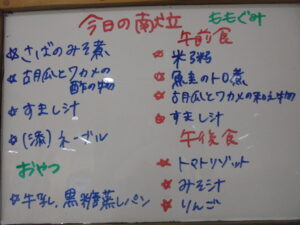 今日の献立
ももぐみ
★さばのみそ煮
★胡瓜とワカメの
酢の物
★すまし汁
★(添)ネーブル
おやつ
★牛乳、黒糖蒸しパン
午前食
★米粥
★魚のトロ煮
★胡瓜とワカメの和え物
★すまし汁
午後食
★トマトリゾット
★みそ汁
★りんご